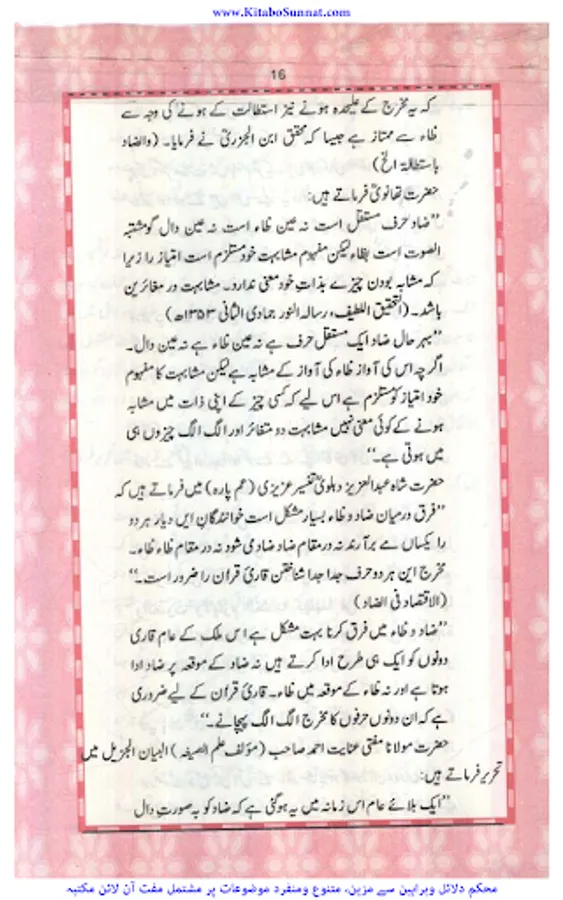 www.KitaboSunnat.com
16
کہ یہ مخرج کے علیحدہ ہونے نیز استطالت کے ہونے کی وجہ سے
ظاء سے ممتاز ہے جیسا کہ محقق ابن الجزریؒ نے فرمایا۔ (والضاد
باستطالۃ الخ)
حضرت تھانویؒ فرماتے ہیں:
”ضاد حرف مستقل است نہ عین ظاء است نہ عین دال گو مشتبہ
الصوت است بظاء لیکن مفہوم مشابہت خود مستلزم است امتیاز را زیرا
کہ مشابہ بودن چیزے بذات خود معنی ندارد۔ مشابہت در مغائرین
باشد۔ (التحقیق اللطیف، رسالہ النور جمادی الثانی ۱۳۵۳ھ)
”بہر حال ضاد ایک مستقل حرف ہے نہ عین ظاء ہے نہ عین دال۔
اگرچہ اس کی آواز ظاء کی آواز کے مشابہ ہے لیکن مشابہت کا مفہوم
خود امتیاز کو مستلزم ہے اس لیے کہ کسی چیز کے اپنی ذات میں مشابہ
ہونے کے کوئی معنی نہیں مشابہت دو متغائر اور الگ الگ چیزوں ہی
میں ہوتی ہے۔“
حضرت شاہ عبدالعزیز دہلویؒ تفسیر عزیزی (عم پارہ) میں فرماتے ہیں کہ
”فرق درمیان ضاد و ظاء بسیار مشکل است خوانندگان ایں دیار ہر دو
را یکساں مے برآرند نہ در مقام ضاد ضاد می شود نہ در مقام ظاء ظاء۔
مخرج این ہر دو حرف جدا جدا شناختن قاریٔ قرآن را ضرور است۔“
(الاقتصاد فی الضاد)
”ضاد و ظاء میں فرق کرنا بہت مشکل ہے اس ملک کے عام قاری
دونوں کو ایک ہی طرح ادا کرتے ہیں نہ ضاد کے موقعہ پر ضاد ادا
ہوتا ہے اور نہ ظاء کے موقعہ میں ظاء۔ قاریٔ قرآن کے لیے ضروری
ہے کہ ان دونوں حرفوں کا مخرج الگ الگ پہچانے۔“
حضرت مولانا مفتی عنایت احمد صاحب (مؤلف علم الصیغہ) البیان الجزیل میں
تحریر فرماتے ہیں:
”ایک بلائے عام اس زمانہ میں یہ ہوگئی ہے کہ ضاد کو بہ صورتِ دال
محکم دلائل وبراہین سے مزین، متنوع ومنفرد موضوعات پر مشتمل مفت آن لائن مکتبہ